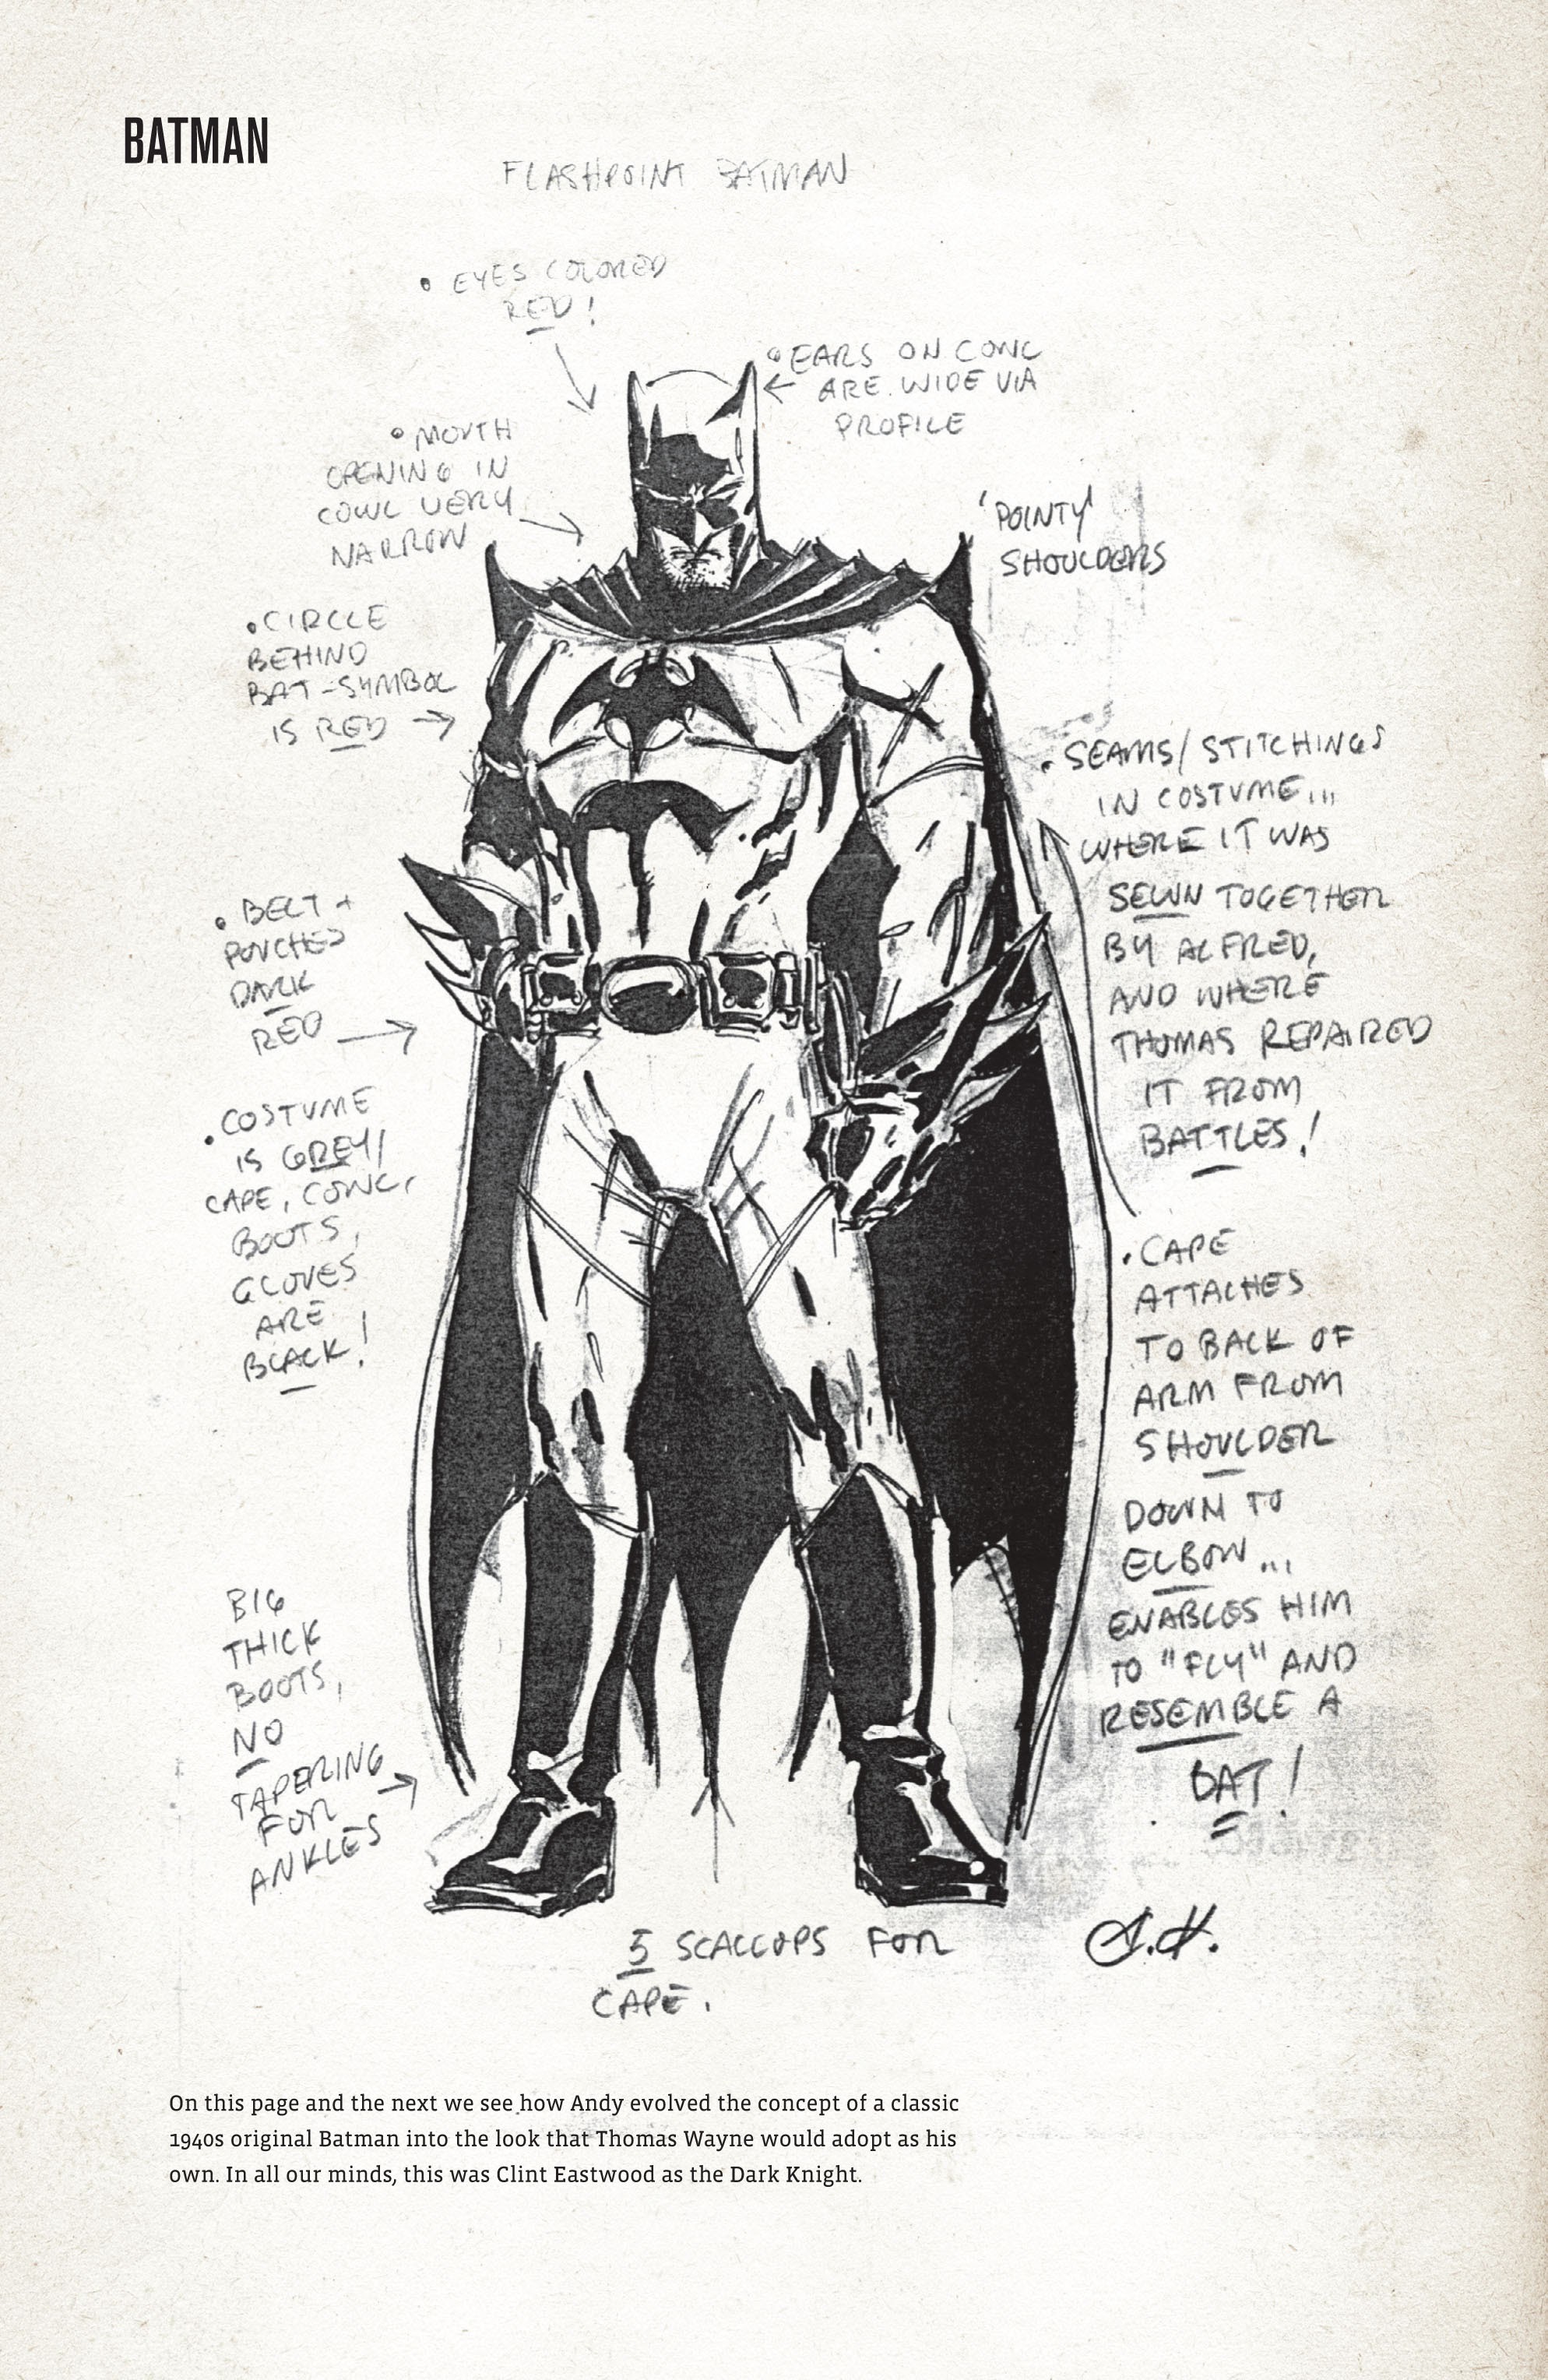 BATMAN
FLASHPOINT BATMAN
• EYES COLORED
RED!
• EARS ON COWL
ARE WIDE VIA
PROFILE
• MOUTH
OPENING IN
COWL VERY
NARROW
'POINTY'
SHOULDERS
• CIRCLE
BEHIND
BAT-SYMBOL
IS RED
• SEAMS/STITCHINGS
IN COSTUME...
WHERE IT WAS
SEWN TOGETHER
BY ALFRED,
AND WHERE
THOMAS REPAIRED
IT FROM
BATTLES!
• BELT +
POUCHES
DARK
RED
• COSTUME
IS GREY/
CAPE, COWL,
BOOTS,
GLOVES
ARE
BLACK!
• CAPE
ATTACHES
TO BACK OF
ARM FROM
SHOULDER
DOWN TO
ELBOW...
ENABLES HIM
TO "FLY" AND
RESEMBLE A
BAT!
BIG
THICK
BOOTS,
NO
TAPERING
FOR
ANKLES
5 SCALLOPS FOR
CAPE.
A.K.
On this page and the next we see how Andy evolved the concept of a classic
1940s original Batman into the look that Thomas Wayne would adopt as his
own. In all our minds, this was Clint Eastwood as the Dark Knight.